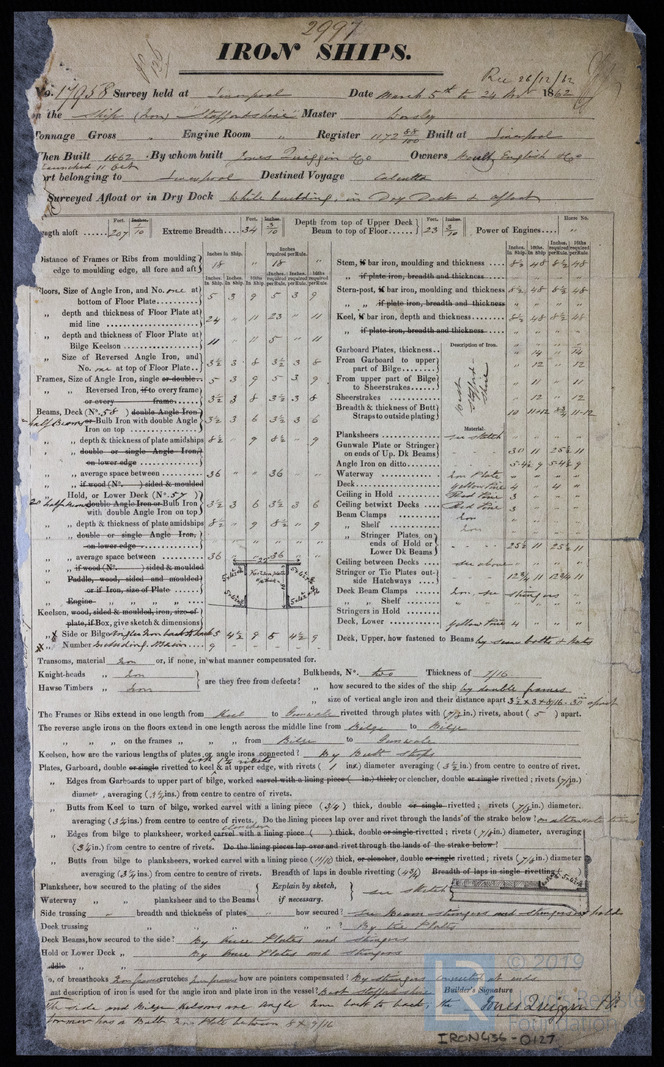 2997
IRON SHIPS.
Rec 26/12/62
No. 17958 Survey held at Liverpool Date March 5th to 24 Nov 1862
on the Ship (Iron) "Staffordshire" Master
Tonnage Gross " Engine Room " Register 1172 58/100 Built at Liverpool
When Built 1862 By whom built Jones Quiggin & Co Owners English & Co
Launched 11 Oct
Port belonging to Liverpool Destined Voyage Calcutta
Surveyed Afloat or in Dry Dock While building, in Dry Dock & afloat
Length aloft Feet. 207 Inches. 1/10 Extreme Breadth Feet. 34 Inches. 3/10 Depth from top of Upper Deck Beam to top of Floor Feet. 23 Inches. 3/10 Power of Engines Horse No. "
Distance of Frames or Ribs from moulding edge to moulding edge, all fore and aft 18 " 18 "
Floors, Size of Angle Iron, and No. one at bottom of Floor Plate 5 3 9 5 3 9
" depth and thickness of Floor Plate at mid line 24 " 11 23 " 11
" depth and thickness of Floor Plate at Bilge Keelson 11 " 11 5 " 11
" Size of Reversed Angle Iron, and No. one at top of Floor Plate 3½ 3 8 3½ 3 8
Frames, Size of Angle Iron, single or double 5 3 9 5 3 9
" Reversed Iron, if to every frame or every frame 3½ 3 8 3½ 3 8
Beams, Deck (No. 58) double Angle Iron or Bulb Iron with double Angle Iron on top 3½ 3 6 3½ 3 6
half Beams
" depth & thickness of plate amidships 8½ " 9 8½ " 9
" double or single Angle Iron, on lower edge
" average space between 36 " " 36 " "
" if wood (No. ) sided & moulded
Hold, or Lower Deck (No. 57) double Angle Iron or Bulb Iron with double Angle Iron on top 3½ 3 6 3½ 3 6
20 half Beams
" depth & thickness of plate amidships 8½ " 9 8½ " 9
" double or single Angle Iron, on lower edge
" average space between 36 36
" if wood (No. ) sided & moulded
Paddle, wood, sided and moulded or if Iron, size of Plate
" Engine " " "
Keelson, wood, sided & moulded, iron, size of plate, if Box, give sketch & dimensions
" Side or Bilge Angle Iron back to back 5 4½ 9 5 4½ 9
" Number including Main 9
Stem, if bar iron, moulding and thickness 8½ 48 8½ 48
" if plate iron, breadth and thickness
Stern-post, if bar iron, moulding and thickness 8½ 48 8½ 48
" " if plate iron, breadth and thickness
Keel, if bar iron, depth and thickness 8½ 48 8½ 48
" if plate iron, breadth and thickness
Description of Iron.
Best Stafford Shire
Garboard Plates, thickness " 14 " 14
From Garboard to upper part of Bilge " 12 " 12
From upper part of Bilge to Sheerstrakes " 11 " 11
Sheerstrakes " 12 " 12
Breadth & thickness of Butt Straps to outside plating 10 11-12 8¾ 11-12
Material.
Planksheers see sketch
Gunwale Plate or Stringer on ends of Up. Dk Beams 30 11 25½ 11
Angle Iron on ditto 5-4½ 9 5-4½ 9
Waterway Iron Plate
Deck Yellow Pine 4 " 4 "
Ceiling in Hold Red Pine 3
Ceiling betwixt Decks Red Pine 3
Beam Clamps Iron
" Shelf Iron
" Stringer Plates, on ends of Hold or Lower Dk Beams 25½ 11 25½ 11
Ceiling between Decks see above
Stringer or Tie Plates outside Hatchways 12¾ 11 12¾ 11
Deck Beam Clamps Iron. see stringers
" " Shelf
Stringers in Hold
Deck, Lower Yellow Pine 4
Deck, Upper, how fastened to Beams by screw bolts & nuts
Transoms, material Iron or, if none, in what manner compensated for.
Knight-heads " Iron
Hawse Timbers " Iron are they free from defects?
Bulkheads, No. two Thickness of 7/16
" how secured to the sides of the ship by double frames
" size of vertical angle iron and their distance apart 3½ x 3 x 6/16. 30 in apart
The Frames or Ribs extend in one length from Keel to Gunwale rivetted through plates with (7/8 in.) rivets, about ( 5 ) apart.
The reverse angle irons on the floors extend in one length across the middle line from Bilge to Bilge
" " " on the frames " " " from Bilge to Gunwale
Keelson, how are the various lengths of plates or angle irons connected? By Butt straps
Plates, Garboard, double or single rivetted to keel & at upper edge, with rivets ( 1 ins.) diameter averaging (3¾ in.) from centre to centre of rivet.
with 1⅛ rivets
" Edges from Garboards to upper part of bilge, worked carvel with a lining piece ( in.) thick, or clencher, double or single rivetted; rivets (7/8 in.)
diameter, averaging (3¾ ins.) from centre to centre of rivets.
" Butts from Keel to turn of bilge, worked carvel with a lining piece (3/4) thick, double or single rivetted; rivets (7/8 in.) diameter.
averaging (3¾ ins.) from centre to centre of rivets. Do the lining pieces lap over and rivet through the lands of the strake below? on alternate
clencher
" Edges from bilge to planksheer, worked carvel with a lining piece ( ) thick, double or single rivetted; rivets (7/8 in.) diameter, averaging
(3¾ in.) from centre to centre of rivets. Do the lining pieces lap over and rivet through the lands of the strake below?
" Butts from bilge to planksheers, worked carvel with a lining piece (11/16) thick, or clencher, double or single rivetted; rivets (7/8 in.) diameter
averaging (3¾ ins.) from centre to centre of rivets. Breadth of laps in double rivetting (4¾) Breadth of laps in single rivetting ( )
Planksheer, how secured to the plating of the sides
Waterway " " planksheer and to the Beams
Explain by sketch, if necessary.
see sketch
Side trussing " breadth and thickness of plates " how secured? see Beam stringers and stringers in hold
Deck trussing " " " By tie Plates
Deck Beams, how secured to the side? By knee Plates and Stringers
Hold or Lower Deck " By knee Plates and Stringers
Paddle " "
No. of breasthooks crutches how are pointers compensated? By stringers connected at ends
What description of iron is used for the angle iron and plate iron in the vessel? Best Staffordshire
Builder's Signature
Jones Quiggin & Co.
The side and Bilge kelsons are Angle Iron back to back; the
former has a Bulb Iron Plate between 8 x 9/16
© 2019
Foundation
IRON436-0127